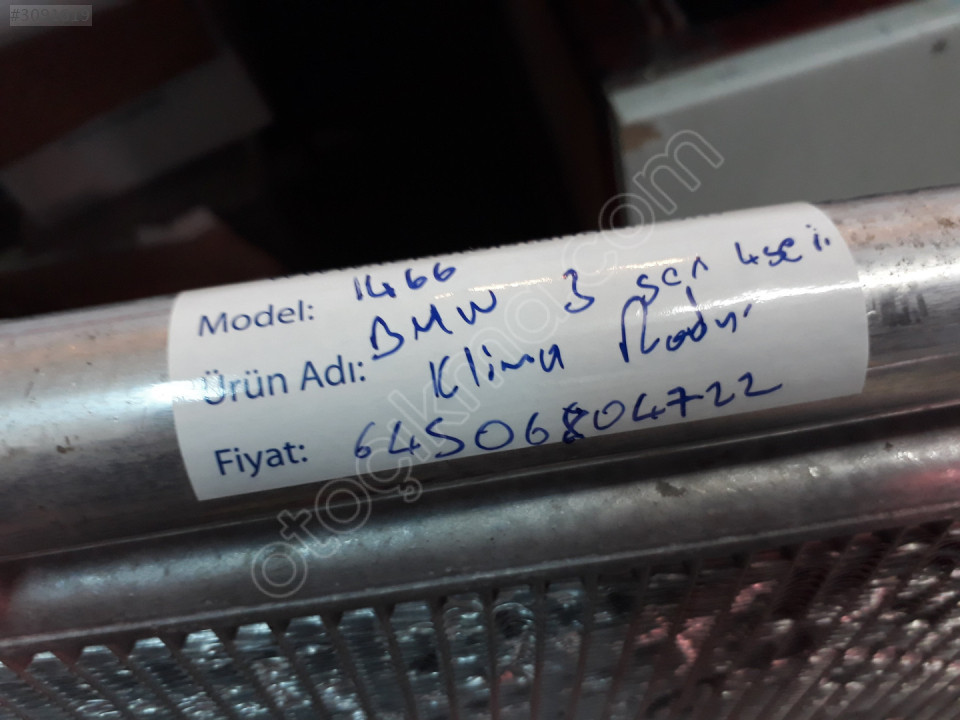 Model: 1466
Ürün Adı: BMW 3 ser 4se
Klima Rady
Fiyat: 64506804722
otoçıkma.com